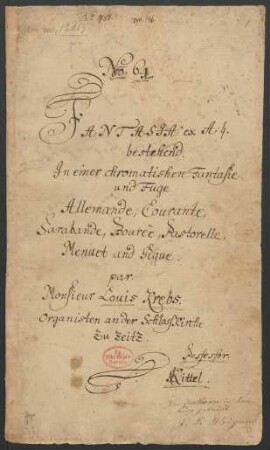 No. 64.
FANTASIA ex A ♮.
bestehend
In einer chromatishen Fantasie
und Fuge
Allemande, Courante,
Sarabande, Bourèe, Pastorelle,
Menuet und Gique.
par
Monsieur Louis Krebs.
Organisten an der Schlosskirche
zu Zeitz.
Possessor
Kittel.